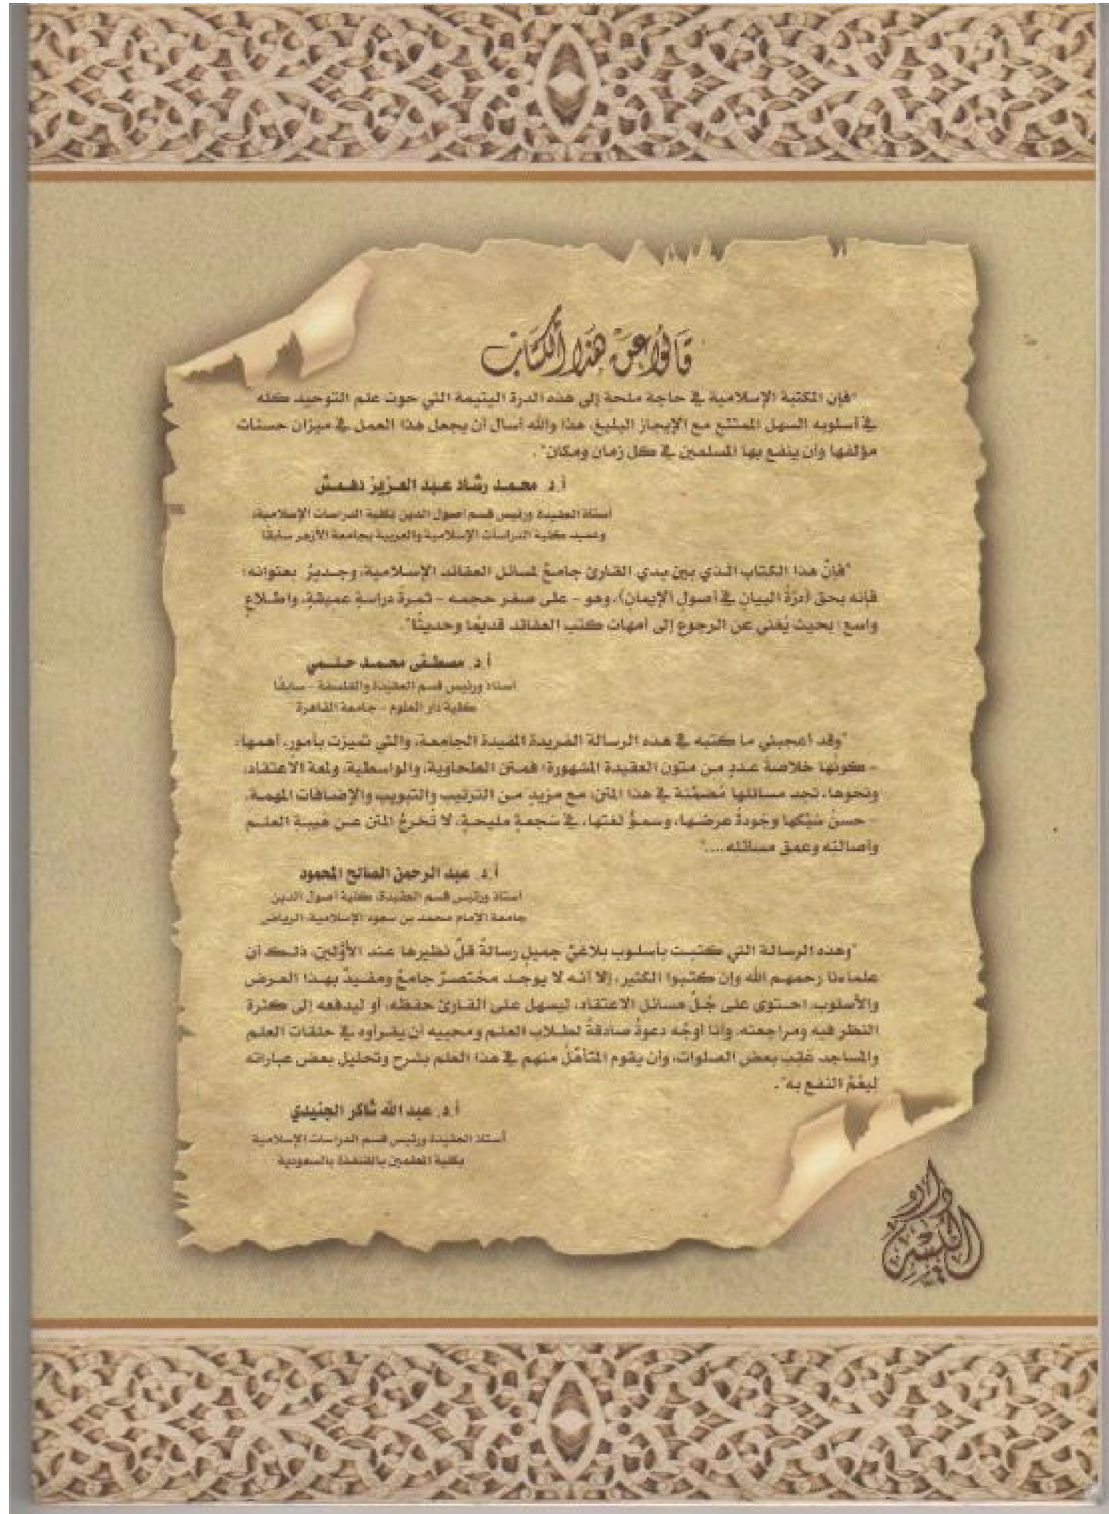 قالوا عن هذا الكتاب
"فإن المكتبة الإسلامية في حاجة ملحة إلى هذه الدرة اليتيمة التي حوت علم التوحيد كله
في أسلوبه السهل الممتنع مع الإيجاز البليغ، هذا والله أسأل أن يجعل هذا العمل في ميزان حسنات
مؤلفها وأن ينفع بها المسلمين في كل زمان ومكان".
أ.د. محمد رشاد عبد العزيز دهمش
أستاذ العقيدة ورئيس قسم أصول الدين بكلية الدراسات الإسلامية،
وعميد كلية الدراسات الإسلامية والعربية بجامعة الأزهر سابقًا
"فإنّ هذا الكتاب الذي بين يدي القارئ جامعٌ لمسائل العقائد الإسلامية، وجديرٌ بعنوانه؛
فإنه بحق (درّةُ البيانِ في أصولِ الإيمانِ)، وهو - على صغر حجمه - ثمرةُ دراسةٍ عميقةٍ، واطّلاعٍ
واسعٍ؛ بحيث يُغني عن الرجوع إلى أمهات كتب العقائد قديمًا وحديثًا".
أ.د. مصطفى محمد حلمي
أستاذ ورئيس قسم العقيدة والفلسفة - سابقًا
كلية دار العلوم - جامعة القاهرة
"وقد أعجبني ما كتبه في هذه الرسالة الفريدة المفيدة الجامعة، والتي تميزت بأمور، أهمها:
- كونُها خلاصةَ عددٍ من متون العقيدة المشهورة؛ فمتن الطحاوية، والواسطية، ولمعة الاعتقاد،
ونحوها، تجد مسائلها مُضمَّنة في هذا المتن؛ مع مزيدٍ من الترتيب والتبويب والإضافات المهمة.
- حسنُ سَبْكها وجَودةُ عرضها، وسموُّ لغتها، في سَجعةٍ مليحةٍ، لا تَخرجُ المتن عن هيبة العلم
وأصالته وعمق مسائله...."
أ.د. عبد الرحمن الصالح المحمود
أستاذ ورئيس قسم العقيدة، كلية أصول الدين
جامعة الإمام محمد بن سعود الإسلامية، الرياض
"وهذه الرسالة التي كتبت بأسلوب بلاغيّ جميلٍ رسالةٌ قلَّ نظيرها عند الأوَّلين، ذلك أن
علماءنا رحمهم الله وإن كتبوا الكثير، إلا أنه لا يوجد مختصرٌ جامعٌ ومفيدٌ بهذا العرض
والأسلوب، احتوى على جُلِّ مسائل الاعتقاد، ليسهل على القارئ حفظه، أو ليدفعه إلى كثرة
النظر فيه ومراجعته. وأنا أوجِّه دعوةً صادقةً لطلاب العلم ومحبيه أن يقرأوه في حلقات العلم
والمساجد عَقِبَ بعض الصلوات، وأن يقوم المتأهّلُ منهم في هذا العلم بشرح وتحليل بعض عباراته
ليعُمَّ النفع به".
أ.د. عبد الله شاكر الجنيدي
أستاذ العقيدة ورئيس قسم الدراسات الإسلامية
بكلية المعلمين بالقنفذة بالسعودية
دار اليسر